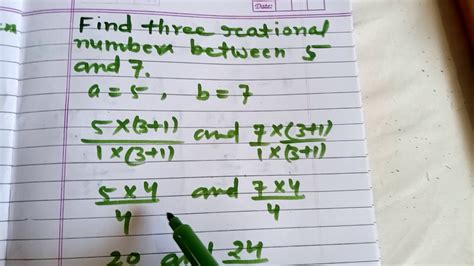 Date:
Find three rational
numbers between 5
and 7.
a = 5, b = 7
5×(3+1)/1×(3+1) and 7×(3+1)/1×(3+1)
5×4/4 and 7×4/4
20 and 24